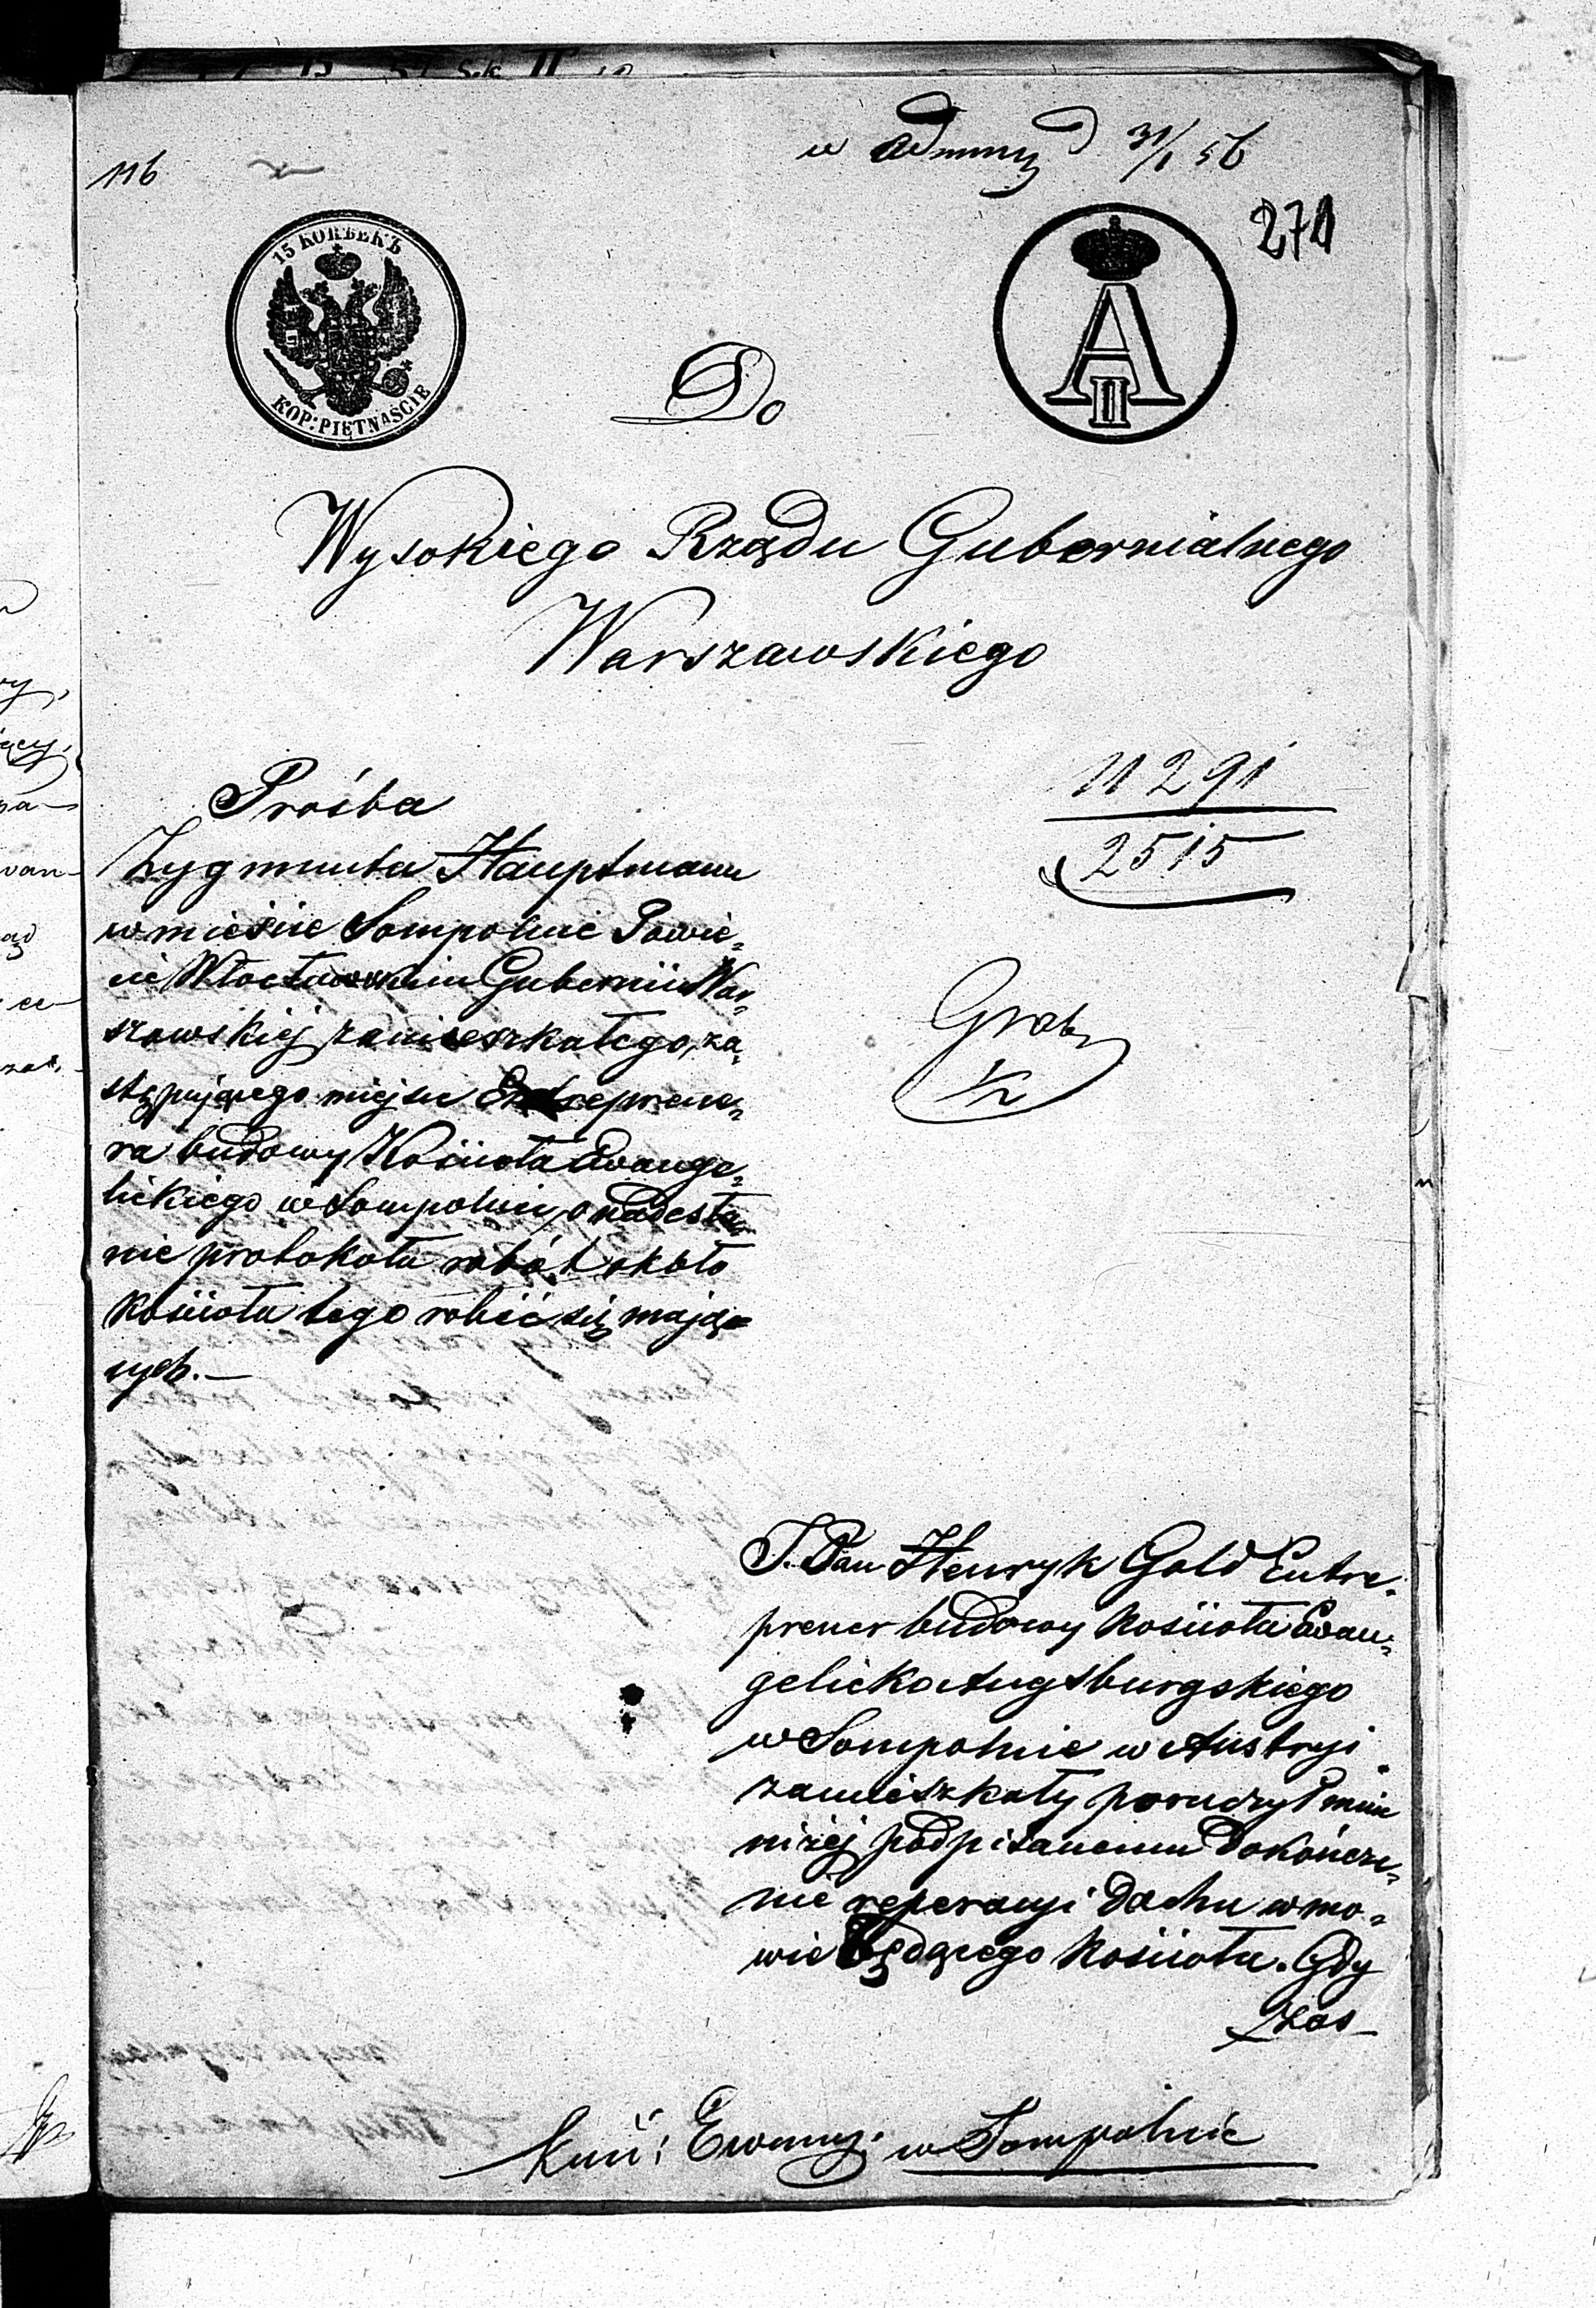 116
w 31/1 56
271
15 КОПѢЕКЪ
KOP: PIĘTNAŚCIE
A II
Do
Wysokiego Rządu Gubernialnego
Warszawskiego
11291
2515
Prośba
Zygmunta Hauptmann
w mieście Sompolnie Powie-
cie Włocławskim Gubernii War-
szawskiej zamieszkałego, za-
stępującego miejsce Entreprene-
ra budowy Kościoła Ewange-
lickiego w Sompolnie, o nadesła-
nie protokołu robót około
kościoła tego robić się mają-
cych.—
J. Pan Henryk Gold Entre-
prener budowy kościoła Ewan-
gelicko Augsburgskiego
w Sompolnie w Austryi
zamieszkały poruczył mnie
niżej podpisanemu dokończe-
nie reperacyi dachu w mo-
wie będącego kościoła. Gdy
zaś
w Sompolnie